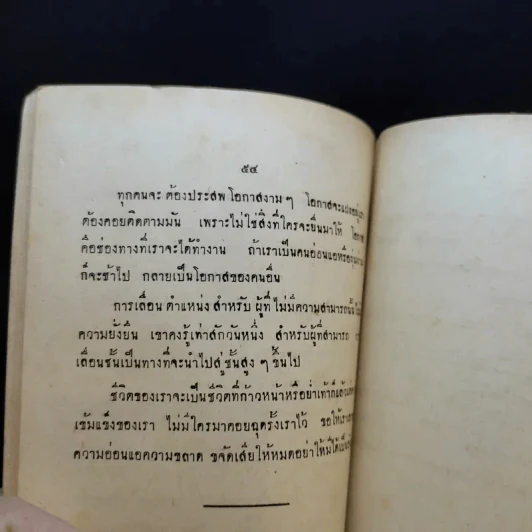 ๕๔
ทุกคนจะ ต้องประสพ โอกาสงาม ๆ โอกาสจะ
ต้องคอยติดตามมัน เพราะไม่ใช่สิ่งที่ใครจะยื่นมาให้
คือช่องทางที่เราจะได้ทำงาน ถ้าเราเป็นคนอ่อนแอหรือ
ก็จะช้าไป กลายเป็นโอกาสของคนอื่น
การเลื่อน ตำแหน่ง สำหรับ ผู้ที่ ไม่มีความสามารถนั้น
ความยั่งยืน เขาคงรู้เท่าสักวันหนึ่ง สำหรับผู้ที่สามารถ
เลื่อนชั้นเป็นทางที่จะนำไปสู่ ชั้นสูง ๆ ขึ้นไป
ชีวิตของเราจะเป็นชีวิตที่ก้าวหน้าหรือย่ำเท้าก็แล้วแต่
เข้มแข็งของเรา ไม่มีใครมาคอยฉุดรั้งเราไว้ ขอให้เรา
ความอ่อนแอความขลาด ขจัดเสียให้หมดอย่าให้มีได้เป็น